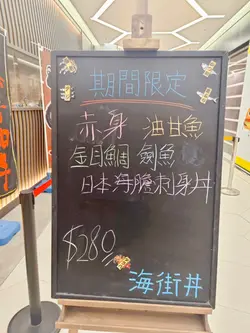 期間限定
赤身 油甘魚
金目鯛 劍魚
日本海膽刺身丼
$280
海街丼